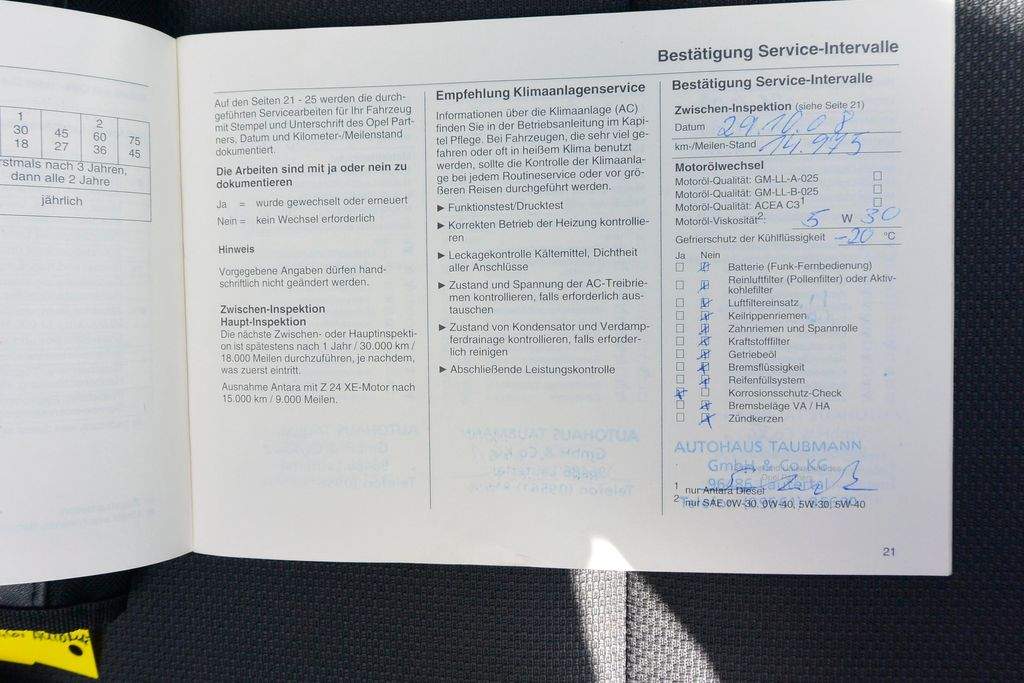 1
2
30
45
60
75
18
27
36
45
rstmals nach 3 Jahren,
dann alle 2 Jahre
jährlich
Bestätigung Service-Intervalle
Auf den Seiten 21 - 25 werden die durch-
geführten Servicearbeiten für Ihr Fahrzeug
mit Stempel und Unterschrift des Opel Part-
ners, Datum und Kilometer-/Meilenstand
dokumentiert.
Die Arbeiten sind mit ja oder nein zu
dokumentieren
Ja = wurde gewechselt oder erneuert
Nein = kein Wechsel erforderlich
Hinweis
Vorgegebene Angaben dürfen hand-
schriftlich nicht geändert werden.
Zwischen-Inspektion
Haupt-Inspektion
Die nächste Zwischen- oder Hauptinspekti-
on ist spätestens nach 1 Jahr / 30.000 km /
18.000 Meilen durchzuführen, je nachdem,
was zuerst eintritt.
Ausnahme Antara mit Z 24 XE-Motor nach
15.000 km / 9.000 Meilen.
Empfehlung Klimaanlagenservice
Informationen über die Klimaanlage (AC)
finden Sie in der Betriebsanleitung im Kapi-
tel Pflege. Bei Fahrzeugen, die sehr viel ge-
fahren oder oft in heißem Klima benutzt
werden, sollte die Kontrolle der Klimaanla-
ge bei jedem Routineservice oder vor grö-
ßeren Reisen durchgeführt werden.
► Funktionstest/Drucktest
► Korrekten Betrieb der Heizung kontrollie-
ren
► Leckagekontrolle Kältemittel, Dichtheit
aller Anschlüsse
► Zustand und Spannung der AC-Treibrie-
men kontrollieren, falls erforderlich aus-
tauschen
► Zustand von Kondensator und Verdamp-
ferdrainage kontrollieren, falls erforder-
lich reinigen
► Abschließende Leistungskontrolle
Bestätigung Service-Intervalle
Zwischen-Inspektion (siehe Seite 21)
Datum 29.10.08
km-/Meilen-Stand 14.975
Motorölwechsel
Motoröl-Qualität: GM-LL-A-025
Motoröl-Qualität: GM-LL-B-025
Motoröl-Qualität: ACEA C3¹
Motoröl-Viskosität²: 5 W 30
Gefrierschutz der Kühlflüssigkeit -20 °C
Ja Nein
Batterie (Funk-Fernbedienung)
Reinluftfilter (Pollenfilter) oder Aktiv-
kohlefilter
Luftfiltereinsatz
Keilrippenriemen
Zahnriemen und Spannrolle
Kraftstofffilter
Getriebeöl
Bremsflüssigkeit
Reifenfüllsystem
Korrosionsschutz-Check
Bremsbeläge VA / HA
Zündkerzen
AUTOHAUS TAUBMANN
GmbH & Co. KG
96486 Lautertal
¹ nur Antara Diesel
² nur SAE 0W-30, 0W-40, 5W-30, 5W-40
21